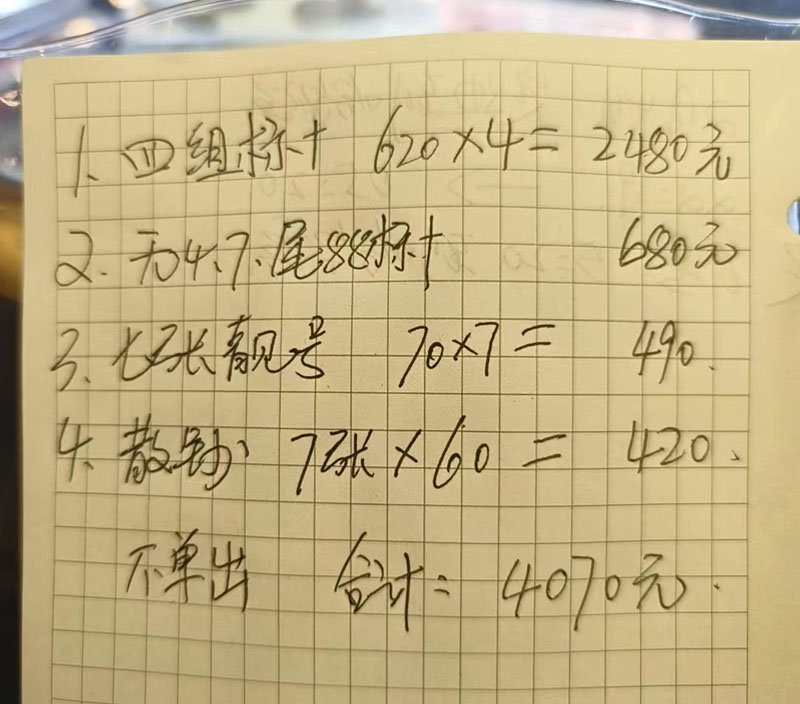 1. 四组标十 620×4= 2480元
2. 无4.7.尾88标十 680元
3. 七张靓号 70×7= 490.
4. 散钞 7张×60= 420.
不单出 合计: 4070元.